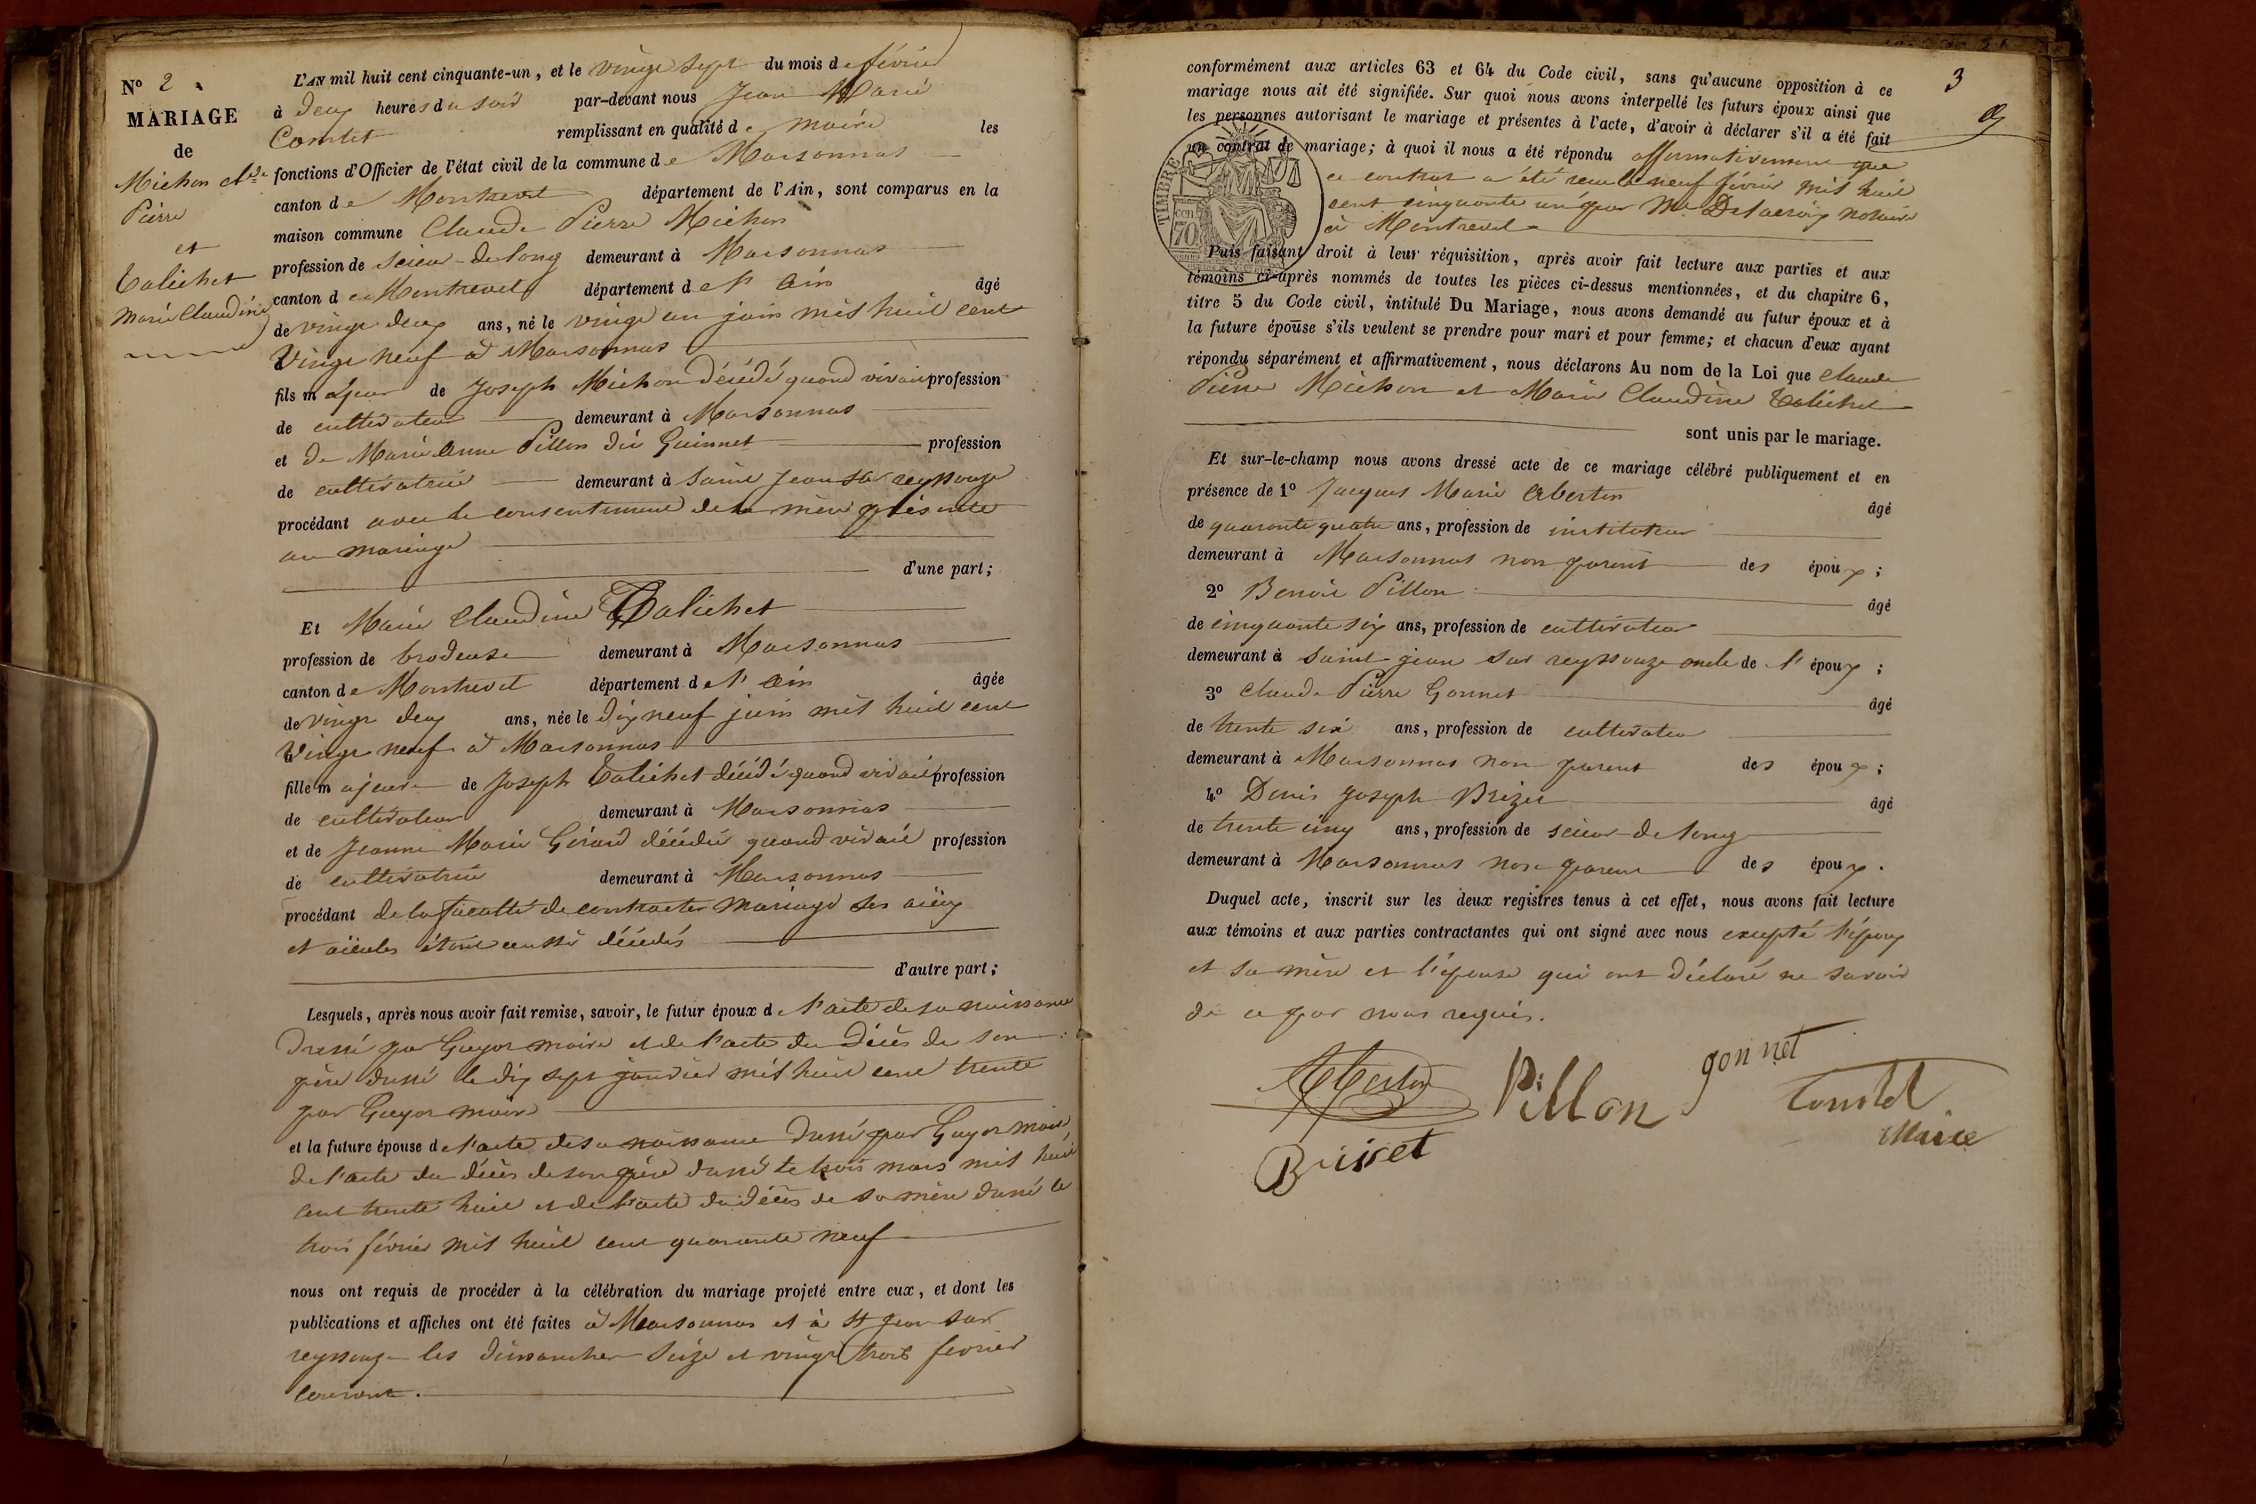 N° 2
MARIAGE
de
Michon Cl.de
Pierre
et
Talichet
Marie Claudine
L'AN mil huit cent cinquante-un, et le vingt sept du mois de février
à deux heures du soir par-devant nous Jean Marie
Comtet remplissant en qualité de maire les
fonctions d'Officier de l'état civil de la commune de Marsonnas
canton de Montrevel département de l'Ain, sont comparus en la
maison commune Claude Pierre Michon
profession de scieur de long demeurant à Marsonnas
canton de Montrevel département de l'Ain âgé
de vingt deux ans, né le vingt un juin mil huit cent
vingt neuf à Marsonnas
fils majeur de Joseph Michon décédé quand vivait profession
de cultivateur demeurant à Marsonnas
et de Marie Anne Pillon dit Guinnet profession
de cultivatrice demeurant à Saint Jean sur reyssouze
procédant avec le consentement de sa mère présente
au mariage
d'une part;
Et Marie Claudine Talichet
profession de brodeuse demeurant à Marsonnas
canton de Montrevel département de l'Ain âgée
de vingt deux ans, née le dix neuf juin mil huit cent
vingt neuf à Marsonnas
fille majeure de Joseph Talichet décédé quand vivait profession
de cultivateur demeurant à Marsonnas
et de Jeanne Marie Gérard décédée quand vivait profession
de cultivatrice demeurant à Marsonnas
procédant de la faculté de contracter mariage ses aïeux
et aïeules étant aussi décédés
d'autre part;
Lesquels, après nous avoir fait remise, savoir, le futur époux de l'acte de sa naissance
dressé par Guyon maire et de l'acte du décès de son
père dressé le dix sept janvier mil huit cent trente
par Guyon maire
et la future épouse de l'acte de sa naissance dressé par Guyon maire,
de l'acte du décès de son père dressé le trois mars mil huit
cent trente huit et de l'acte du décès de sa mère dressé le
trois février mil huit cent quarante neuf
nous ont requis de procéder à la célébration du mariage projeté entre eux, et dont les
publications et affiches ont été faites à Marsonnas et à St jean sur
reyssouze les dimanches seize et vingt trois février
courant.
3
conformément aux articles 63 et 64 du Code civil, sans qu'aucune opposition à ce
mariage nous ait été signifiée. Sur quoi nous avons interpellé les futurs époux ainsi que
les personnes autorisant le mariage et présentes à l'acte, d'avoir à déclarer s'il a été fait
un contrat de mariage; à quoi il nous a été répondu affirmativement que
ce contrat a été reçu le neuf février mil huit
cent cinquante un par Me Delacroix notaire
à Montrevel
TIMBRE
70
Puis faisant droit à leur réquisition, après avoir fait lecture aux parties et aux
témoins ci-après nommés de toutes les pièces ci-dessus mentionnées, et du chapitre 6,
titre 5 du Code civil, intitulé Du Mariage, nous avons demandé au futur époux et à
la future épouse s'ils veulent se prendre pour mari et pour femme; et chacun d'eux ayant
répondu séparément et affirmativement, nous déclarons Au nom de la Loi que Claude
Pierre Michon et Marie Claudine Talichet
sont unis par le mariage.
Et sur-le-champ nous avons dressé acte de ce mariage célébré publiquement et en
présence de 1° Jacques Marie Aberton âgé
de quarante quatre ans, profession de instituteur
demeurant à Marsonnas non parent des époux;
2° Benoit Pillon âgé
de cinquante six ans, profession de cultivateur
demeurant à Saint jean sur reyssouze oncle de l'époux;
3° Claude Pierre Gonnet âgé
de trente six ans, profession de cultivateur
demeurant à Marsonnas non parent des époux;
4° Denis Joseph Brizet âgé
de trente cinq ans, profession de scieur de long
demeurant à Marsonnas non parent des époux.
Duquel acte, inscrit sur les deux registres tenus à cet effet, nous avons fait lecture
aux témoins et aux parties contractantes qui ont signé avec nous excepté l'époux
et sa mère et l'épouse qui ont déclaré ne savoir
de ce par nous requis.
Pillon
gonnet
Comtet
Maire
Brisset